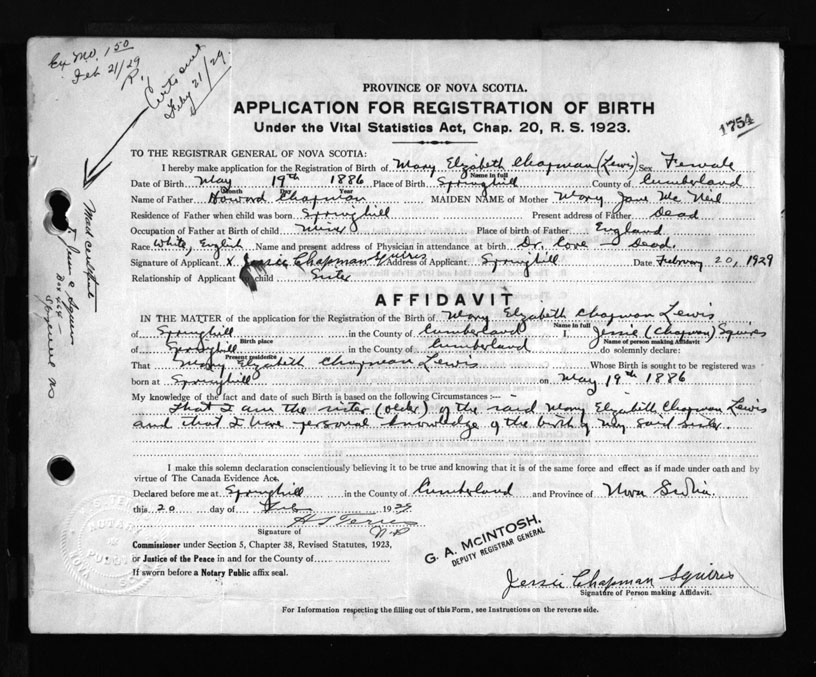 Ex Mo. 150
Feb 21/29
P.
Certs and
Feby 21/29
1754
PROVINCE OF NOVA SCOTIA.
APPLICATION FOR REGISTRATION OF BIRTH
Under the Vital Statistics Act, Chap. 20, R. S. 1923.
TO THE REGISTRAR GENERAL OF NOVA SCOTIA:
I hereby make application for the Registration of Birth of Mary Elizabeth Chapman (Lewis) Sex Female
Name in full
Date of Birth May 19th 1886 Place of Birth Springhill County of Cumberland
Month Day Year
Name of Father Howard Chapman MAIDEN NAME of Mother Mary Jane Mc Neil
Residence of Father when child was born Springhill Present address of Father Dead
Occupation of Father at Birth of child Miner Place of birth of Father England
Race White, English Name and present address of Physician in attendance at birth Dr. Cove – Dead.
Signature of Applicant x Jessie Chapman Squires Address of Applicant Springhill Date February 20, 1929
Relationship of Applicant child Sister
AFFIDAVIT
IN THE MATTER of the application for the Registration of the Birth of Mary Elizabeth Chapman Lewis
Name in full
of Springhill in the County of Cumberland I, Jessie (Chapman) Squires
Birth place Name of Person making Affidavit
of Springhill in the County of Cumberland do solemnly declare:
Present residence
That Mary Elizabeth Chapman Lewis Whose Birth is sought to be registered was
born at Springhill on May 19th 1886
My knowledge of the fact and date of such Birth is based on the following Circumstances :—
That I am the sister (older) of the said Mary Elizabeth Chapman Lewis
and that I have personal knowledge of the birth of my said sister.
I make this solemn declaration conscientiously believing it to be true and knowing that it is of the same force and effect as if made under oath and by
virtue of The Canada Evidence Act.
Declared before me at Springhill in the County of Cumberland and Province of Nova Scotia.
this 20 day of Feb 1929.
N.P
Signature of
Commissioner under Section 5, Chapter 38, Revised Statutes, 1923,
or Justice of the Peace in and for the County of
If sworn before a Notary Public affix seal.
G. A. McINTOSH,
DEPUTY REGISTRAR GENERAL
Jessie Chapman Squires
Signature of Person making Affidavit.
For Information respecting the filling out of this Form, see Instructions on the reverse side.
Box 464